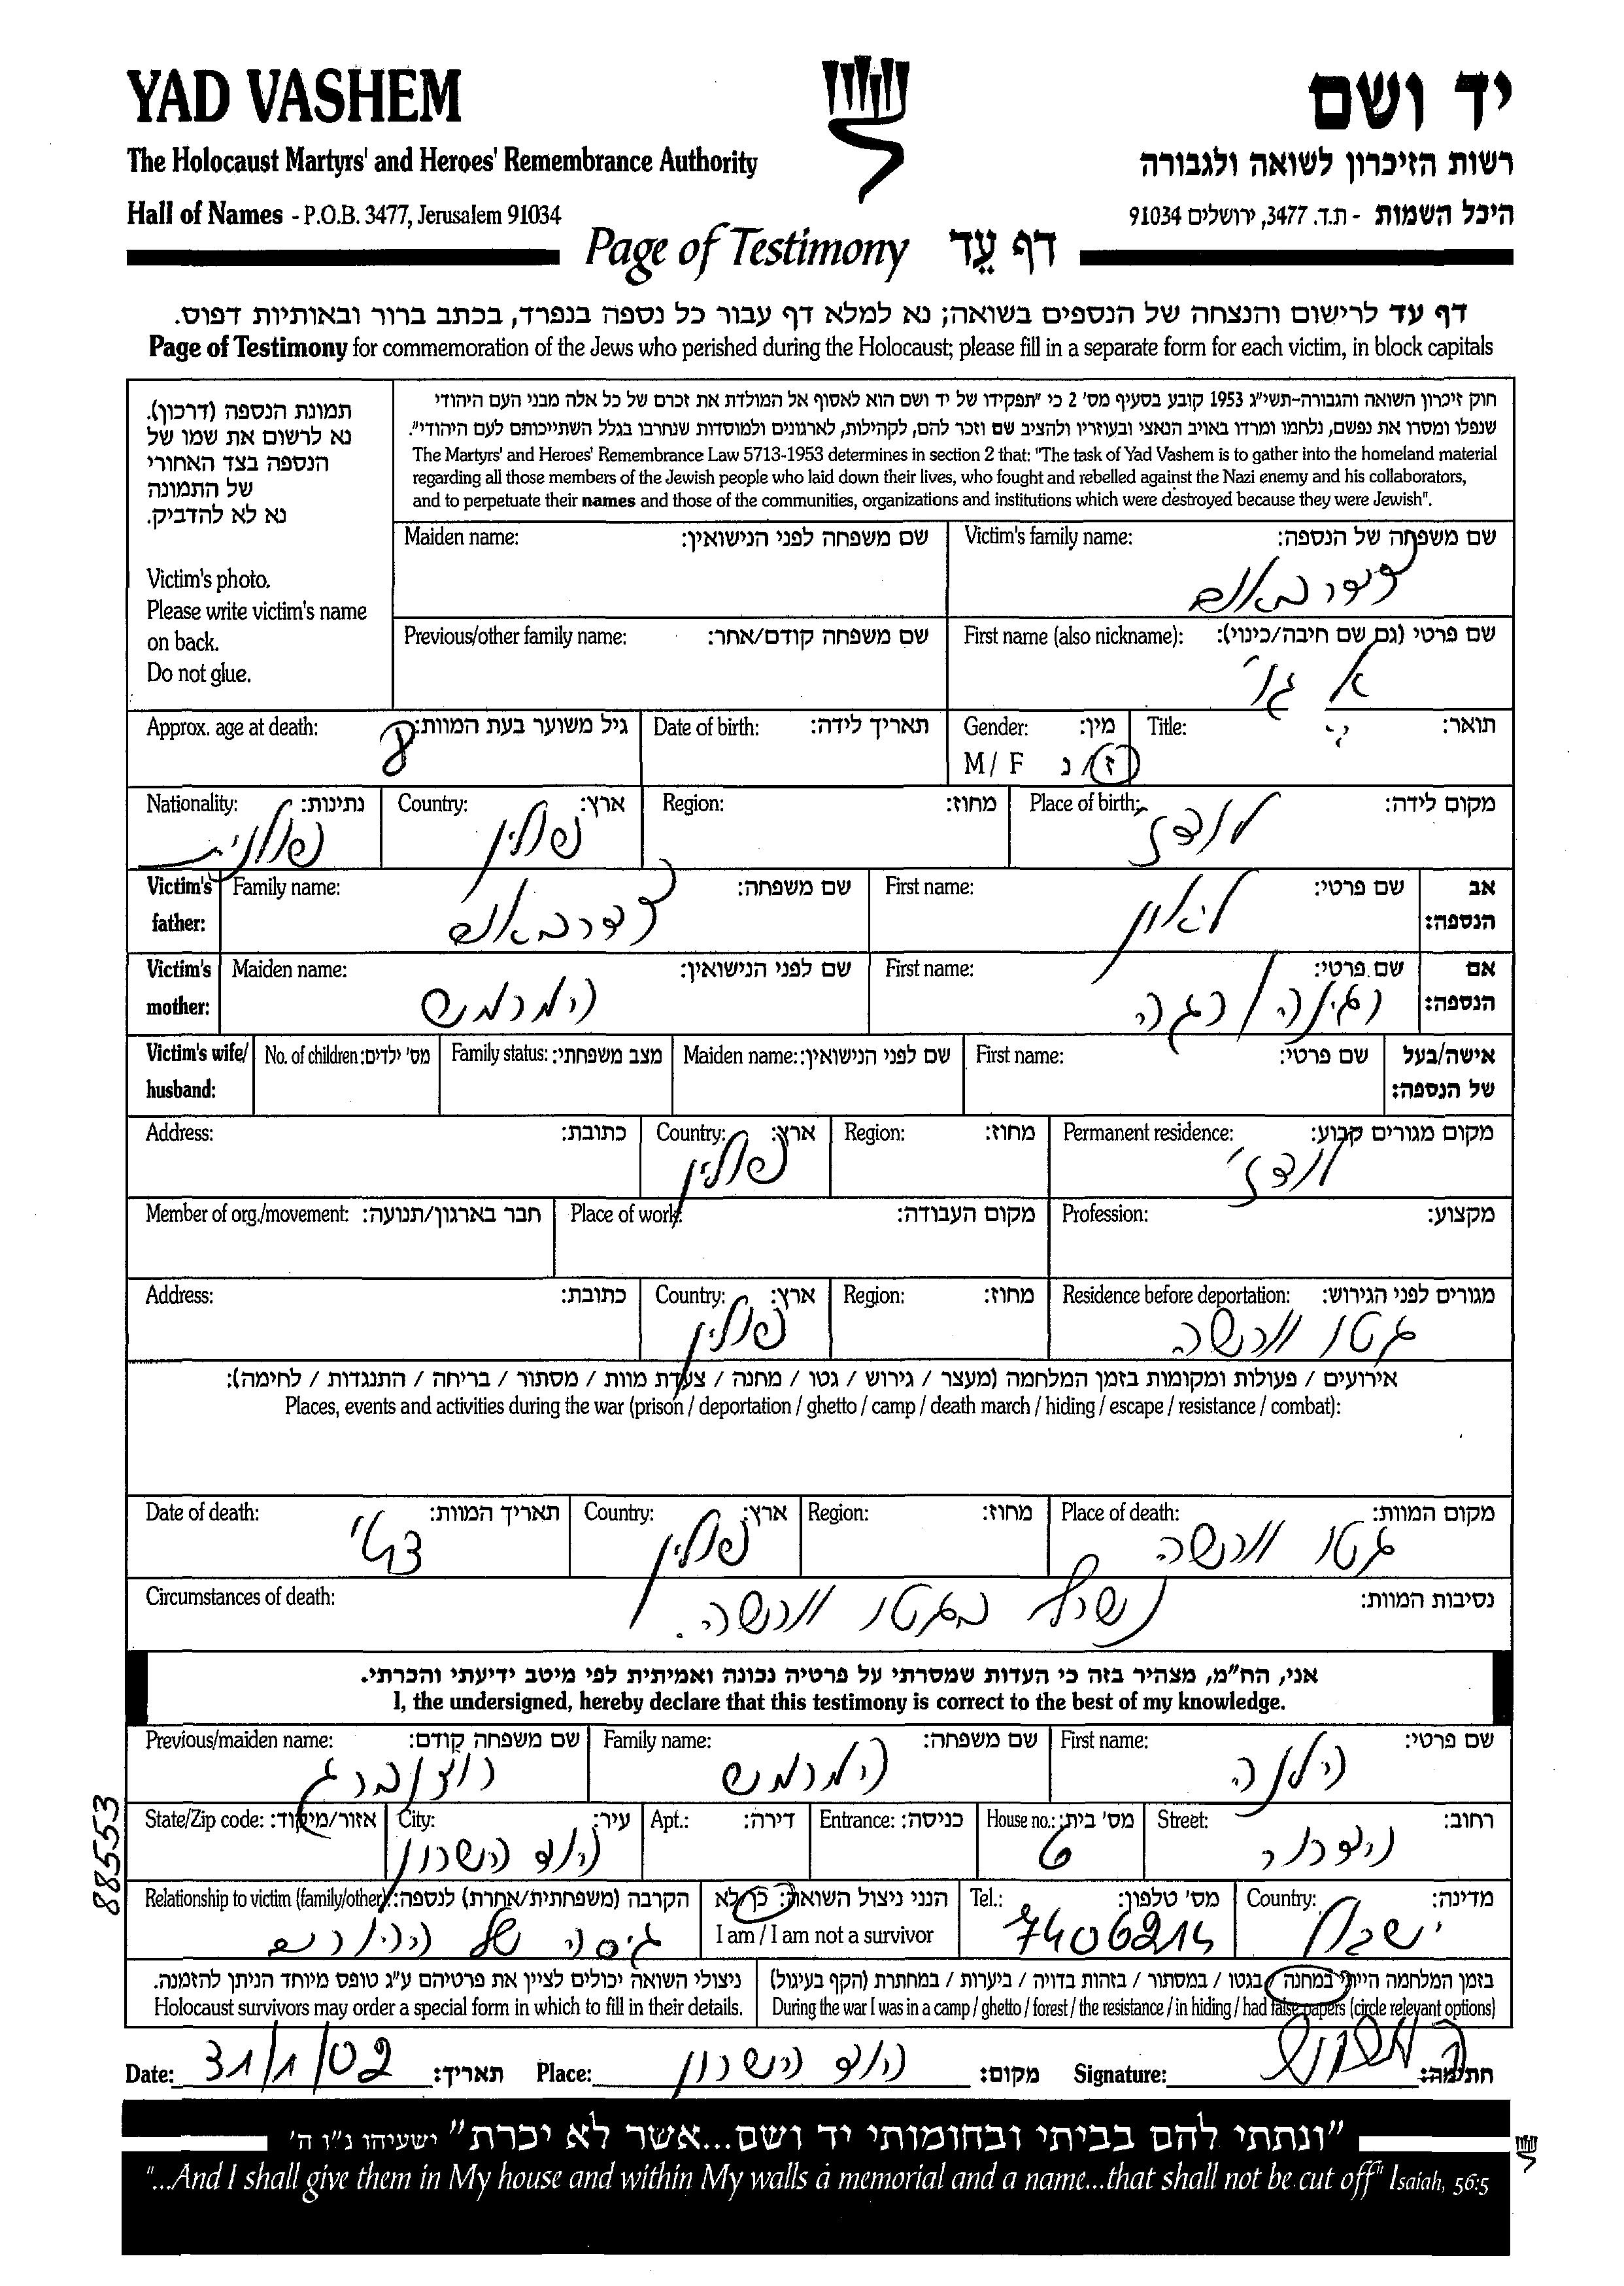 YAD VASHEM
יד ושם
The Holocaust Martyrs' and Heroes' Remembrance Authority
רשות הזיכרון לשואה ולגבורה
Hall of Names - P.O.B. 3477, Jerusalem 91034
היכל השמות - ת.ד. 3477, ירושלים 91034
Page of Testimony דף עֵד
דף עד לרישום והנצחה של הנספים בשואה; נא למלא דף עבור כל נספה בנפרד, בכתב ברור ובאותיות דפוס.
Page of Testimony for commemoration of the Jews who perished during the Holocaust; please fill in a separate form for each victim, in block capitals
תמונת הנספה (דרכון).
נא לרשום את שמו של
הנספה בצד האחורי
של התמונה
נא לא להדביק.
Victim's photo.
Please write victim's name
on back.
Do not glue.
חוק זיכרון השואה והגבורה-תשי"ג 1953 קובע בסעיף מס' 2 כי "תפקידו של יד ושם הוא לאסוף אל המולדת את זכרם של כל אלה מבני העם היהודי
שנפלו ומסרו את נפשם, נלחמו ומרדו באויב הנאצי ובעוזריו ולהציב שם וזכר להם, לקהילות, לארגונים ולמוסדות שנחרבו בגלל השתייכותם לעם היהודי".
The Martyrs' and Heroes' Remembrance Law 5713-1953 determines in section 2 that: "The task of Yad Vashem is to gather into the homeland material
regarding all those members of the Jewish people who laid down their lives, who fought and rebelled against the Nazi enemy and his collaborators,
and to perpetuate their names and those of the communities, organizations and institutions which were destroyed because they were Jewish".
Maiden name: שם משפחה לפני הנישואין:
Victim's family name: שם משפחה של הנספה:
צדרבאום
Previous/other family name: שם משפחה קודם/אחר:
First name (also nickname): שם פרטי (גם שם חיבה/כינוי):
Approx. age at death: גיל משוער בעת המוות: 8
Date of birth: תאריך לידה:
Gender: מין: M / F ז/נ
Title: תואר:
Nationality: נתינות: פולנית
Country: ארץ: פולין
Region: מחוז:
Place of birth: מקום לידה: לודז'
Victim's father: Family name: שם משפחה: צדרבאום
First name: שם פרטי: לאון
אב הנספה:
Victim's mother: Maiden name: שם לפני הנישואין: המרמש
First name: שם פרטי: רגינה / רגה
אם הנספה:
Victim's wife/ husband: No. of children: מס' ילדים: Family status: מצב משפחתי: Maiden name: שם לפני הנישואין: First name: שם פרטי: אישה/בעל של הנספה:
Address: כתובת: Country: ארץ: פולין Region: מחוז: Permanent residence: מקום מגורים קבוע: לודז'
Member of org./movement: חבר בארגון/תנועה: Place of work: מקום העבודה: Profession: מקצוע:
Address: כתובת: Country: ארץ: פולין Region: מחוז: Residence before deportation: מגורים לפני הגירוש: גטו וורשה
אירועים / פעולות ומקומות בזמן המלחמה (מעצר / גירוש / גטו / מחנה / צעדת מוות / מסתור / בריחה / התנגדות / לחימה):
Places, events and activities during the war (prison / deportation / ghetto / camp / death march / hiding / escape / resistance / combat):
Date of death: תאריך המוות: Country: ארץ: פולין Region: מחוז: Place of death: מקום המוות: גטו וורשה
Circumstances of death: נסיבות המוות: נשרף בגטו וורשה.
אני, הח"מ, מצהיר בזה כי העדות שמסרתי על פרטיה נכונה ואמיתית לפי מיטב ידיעתי והכרתי.
I, the undersigned, hereby declare that this testimony is correct to the best of my knowledge.
Previous/maiden name: שם משפחה קודם: רוצנברג Family name: שם משפחה: המרמש First name: שם פרטי: הלנה
State/Zip code: אזור/מיקוד: City: עיר: הוד השרון Apt.: דירה: Entrance: כניסה: House no.: מס' בית: 6 Street: רחוב:
88553
Relationship to victim (family/other): הקרבה (משפחתית/אחרת) לנספה: גיסה של ההורים
הנני ניצול השואה: כן/לא
I am / I am not a survivor
Tel.: מס' טלפון: 7406214
Country: מדינה: ישראל
ניצולי השואה יכולים לציין את פרטיהם ע"ג טופס מיוחד הניתן להזמנה.
Holocaust survivors may order a special form in which to fill in their details.
בזמן המלחמה הייתי במחנה / בגטו / במסתור / בזהות בדויה / ביערות / במחתרת (הקף בעיגול)
During the war I was in a camp / ghetto / forest / the resistance / in hiding / had false papers (circle relevant options)
Date: 31/1/02 תאריך: Place: הוד השרון מקום: Signature: חתימה:
"ונתתי להם בביתי ובחומותי יד ושם...אשר לא יכרת" ישעיהו נ"ו ה'
"...And I shall give them in My house and within My walls a memorial and a name...that shall not be cut off" Isaiah, 56:5